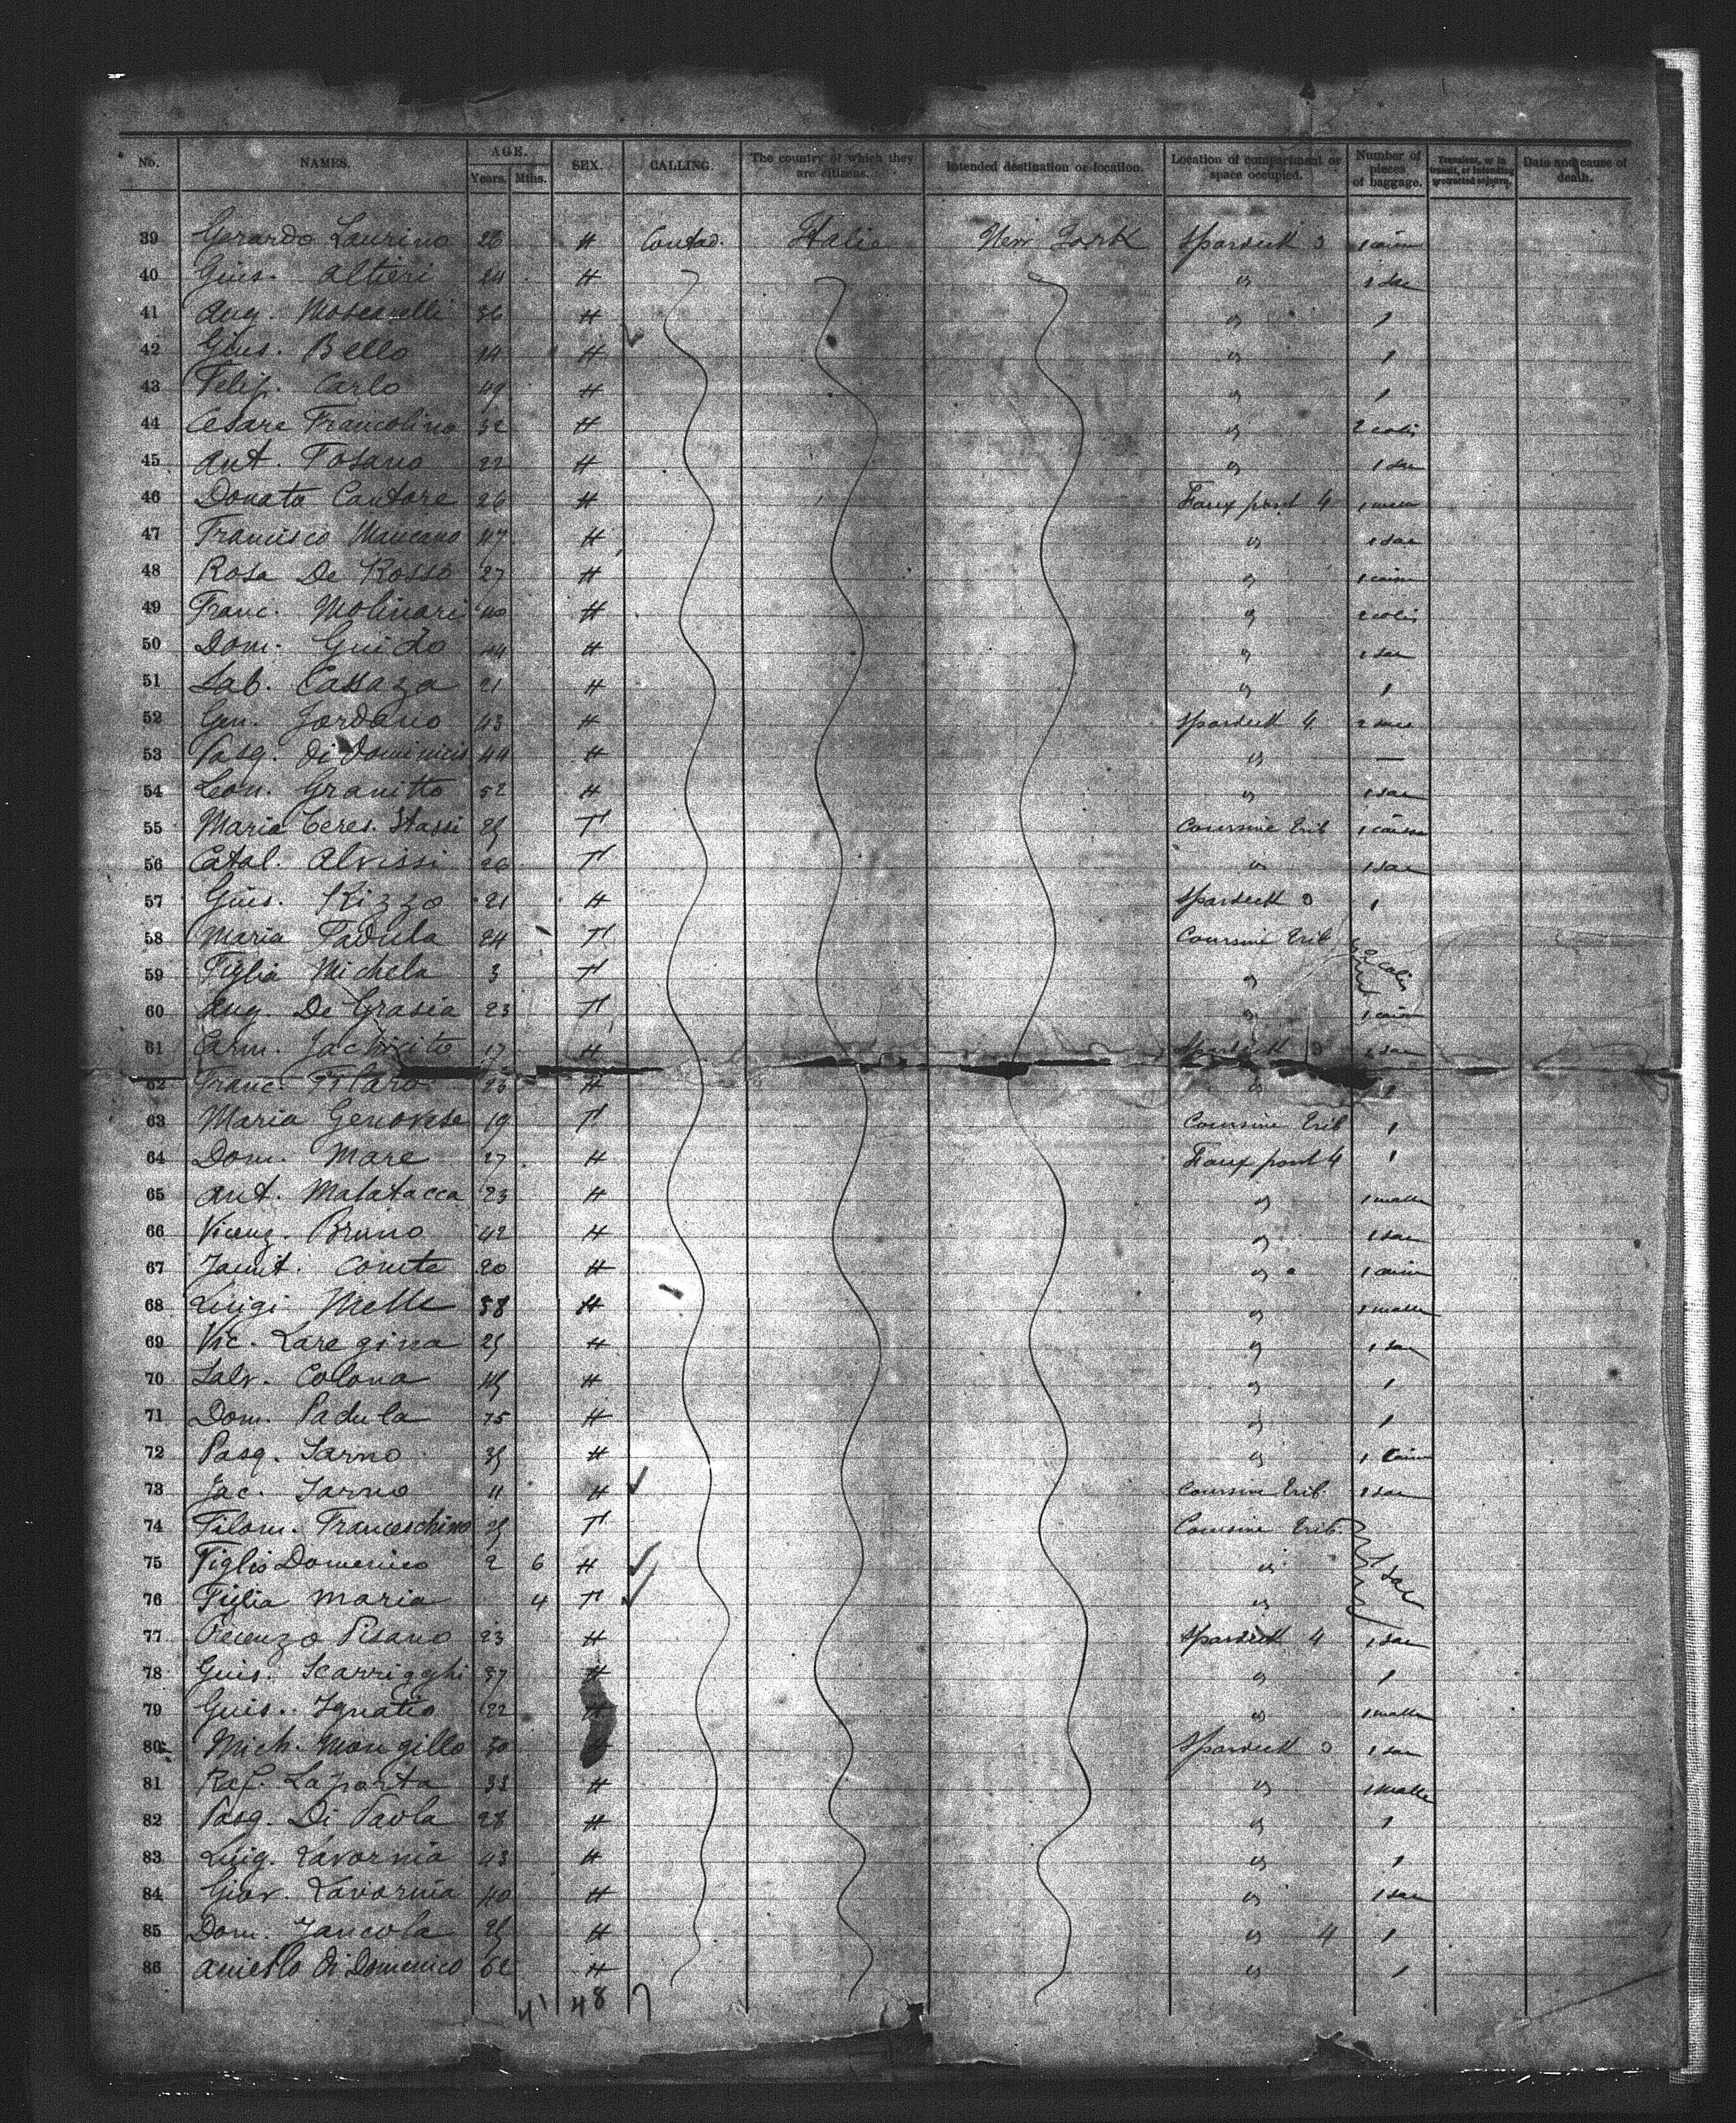 No. NAMES. AGE. Years. Mths. SEX. CALLING. The country of which they are citizens. Intended destination or location. Location of compartment or space occupied. Number of pieces of baggage. Transient, or in transit, or intending protracted sojourn. Date and cause of death.
39 Gerardo Laurino 26 H Contad. Italie New York Spardeck 3 1 caisse
40 Gius. Altieri 24 H " 1 sac
41 Aug. Moscarelli 36 H " 1
42 Gius. Bello 14 H " 1
43 Felip. Carlo 49 H " 1
44 Cesare Francolino 32 H " 2 colis
45 Ant. Fosano 22 H " 1 sac
46 Donato Cantore 26 H Faux pont 4 1
47 Francisco Mancano 47 H " 1 sac
48 Rosa De Rosso 27 H " 1 caisse
49 Franc. Molinari 40 H " 2 colis
50 Dom. Guido 44 H " 1 sac
51 Sab. Cassaza 21 H " 1
52 Gen. Jordano 43 H Spardeck 4 2 sacs
53 Pasq. Di Dominicis 44 H " —
54 Leon. Granitto 52 H " 1 sac
55 Maria Teres. Stassi 25 F Coursive Trib 1 caisse
56 Catal. Alvissi 26 F " 1 sac
57 Gius. Rizzo 21 H Spardeck 3 1
58 Maria Padula 24 F Coursive Trib
59 Figlia Michela 3 F " 2 colis
60 Aug. De Grasia 23 F " 1 caisse
61 Carm. 17 H Spardeck 3 1 sac
62 Franc. Filaro 26 H " 1
63 Maria Genovese 19 F Coursive Trib 1
64 Dom. Mare 27 H Faux pont 4 1
65 Ant. Malatacca 23 H " 1 malle
66 Vicenz. Bruno 42 H " 1 sac
67 Comte 20 H " 1 caisse
68 Luigi Melle 38 H " 1 malle
69 Vic. Laregina 25 H " 1 sac
70 Salv. Colona 15 H " 1
71 Dom. Padula 15 H " 1
72 Pasq. Sarno 35 H " 1 caisse
73 Jac. Sarno 11 H ✓ Coursive Trib. 1 sac
74 Filom. Franceschino 25 F Coursive Trib.
75 Figlio Domenico 2 6 H ✓ " 1 sac
76 Figlia Maria 4 F ✓ "
77 Pisano 23 H Spardeck 4 1 sac
78 Guis. Scarrigghi 37 H " 1
79 Guis. Ignatio 22 H " 1 malle
80 Mich. Mongillo 30 Spardeck 3 1 sac
81 Raf. Laporta 33 H " 1 malle
82 Pasq. Di Paola 28 H " 1
83 Luig. Lavornia 43 H " 1
84 Giov. Lavornia 40 H " 1 sac
85 Dom. Jancola 25 H " 4 1
86 Aniello Di Domenico 62 H " 1
48